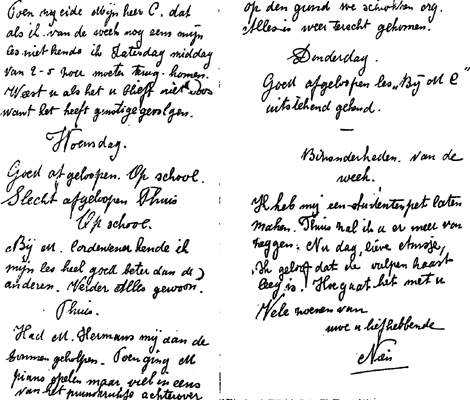 Toen zeide Mijnheer C. dat
als ik van de week nog eens mijn
les niet kende ik Zaterdag middag
van 2-5 zou moeten terug komen.
Wast u als het u blieft niet boos
want het heeft gunstige gevolgen.
Woensdag.
Goed afgeloopen. Op school.
Slecht afgeloopen Thuis
Op school.
Bij M. Cordewener kende ik
mijn les heel goed beter dan de
anderen. Verder Alles gewoon.
Thuis.
Had M. Hermans mij aan de
sommen geholpen. Toen ging M
piano spelen maar viel in eens
van het pianokrukje achterover
op den grond we schrokken erg.
Alles is weer terecht gekomen.
Donderdag.
Goed afgeloopen les „Bij M C"
uitstekend gekend.
—
Bizonderheden. van de
week.
Ik heb mij een studentenpet laten
maken. Thuis zal ik u er meer van
zeggen. Nu dag, lieve
Ik geloof dat de vulpen haast
leeg is. Hoe gaat het met u
Vele zoenen van
uwe u liefhebbende